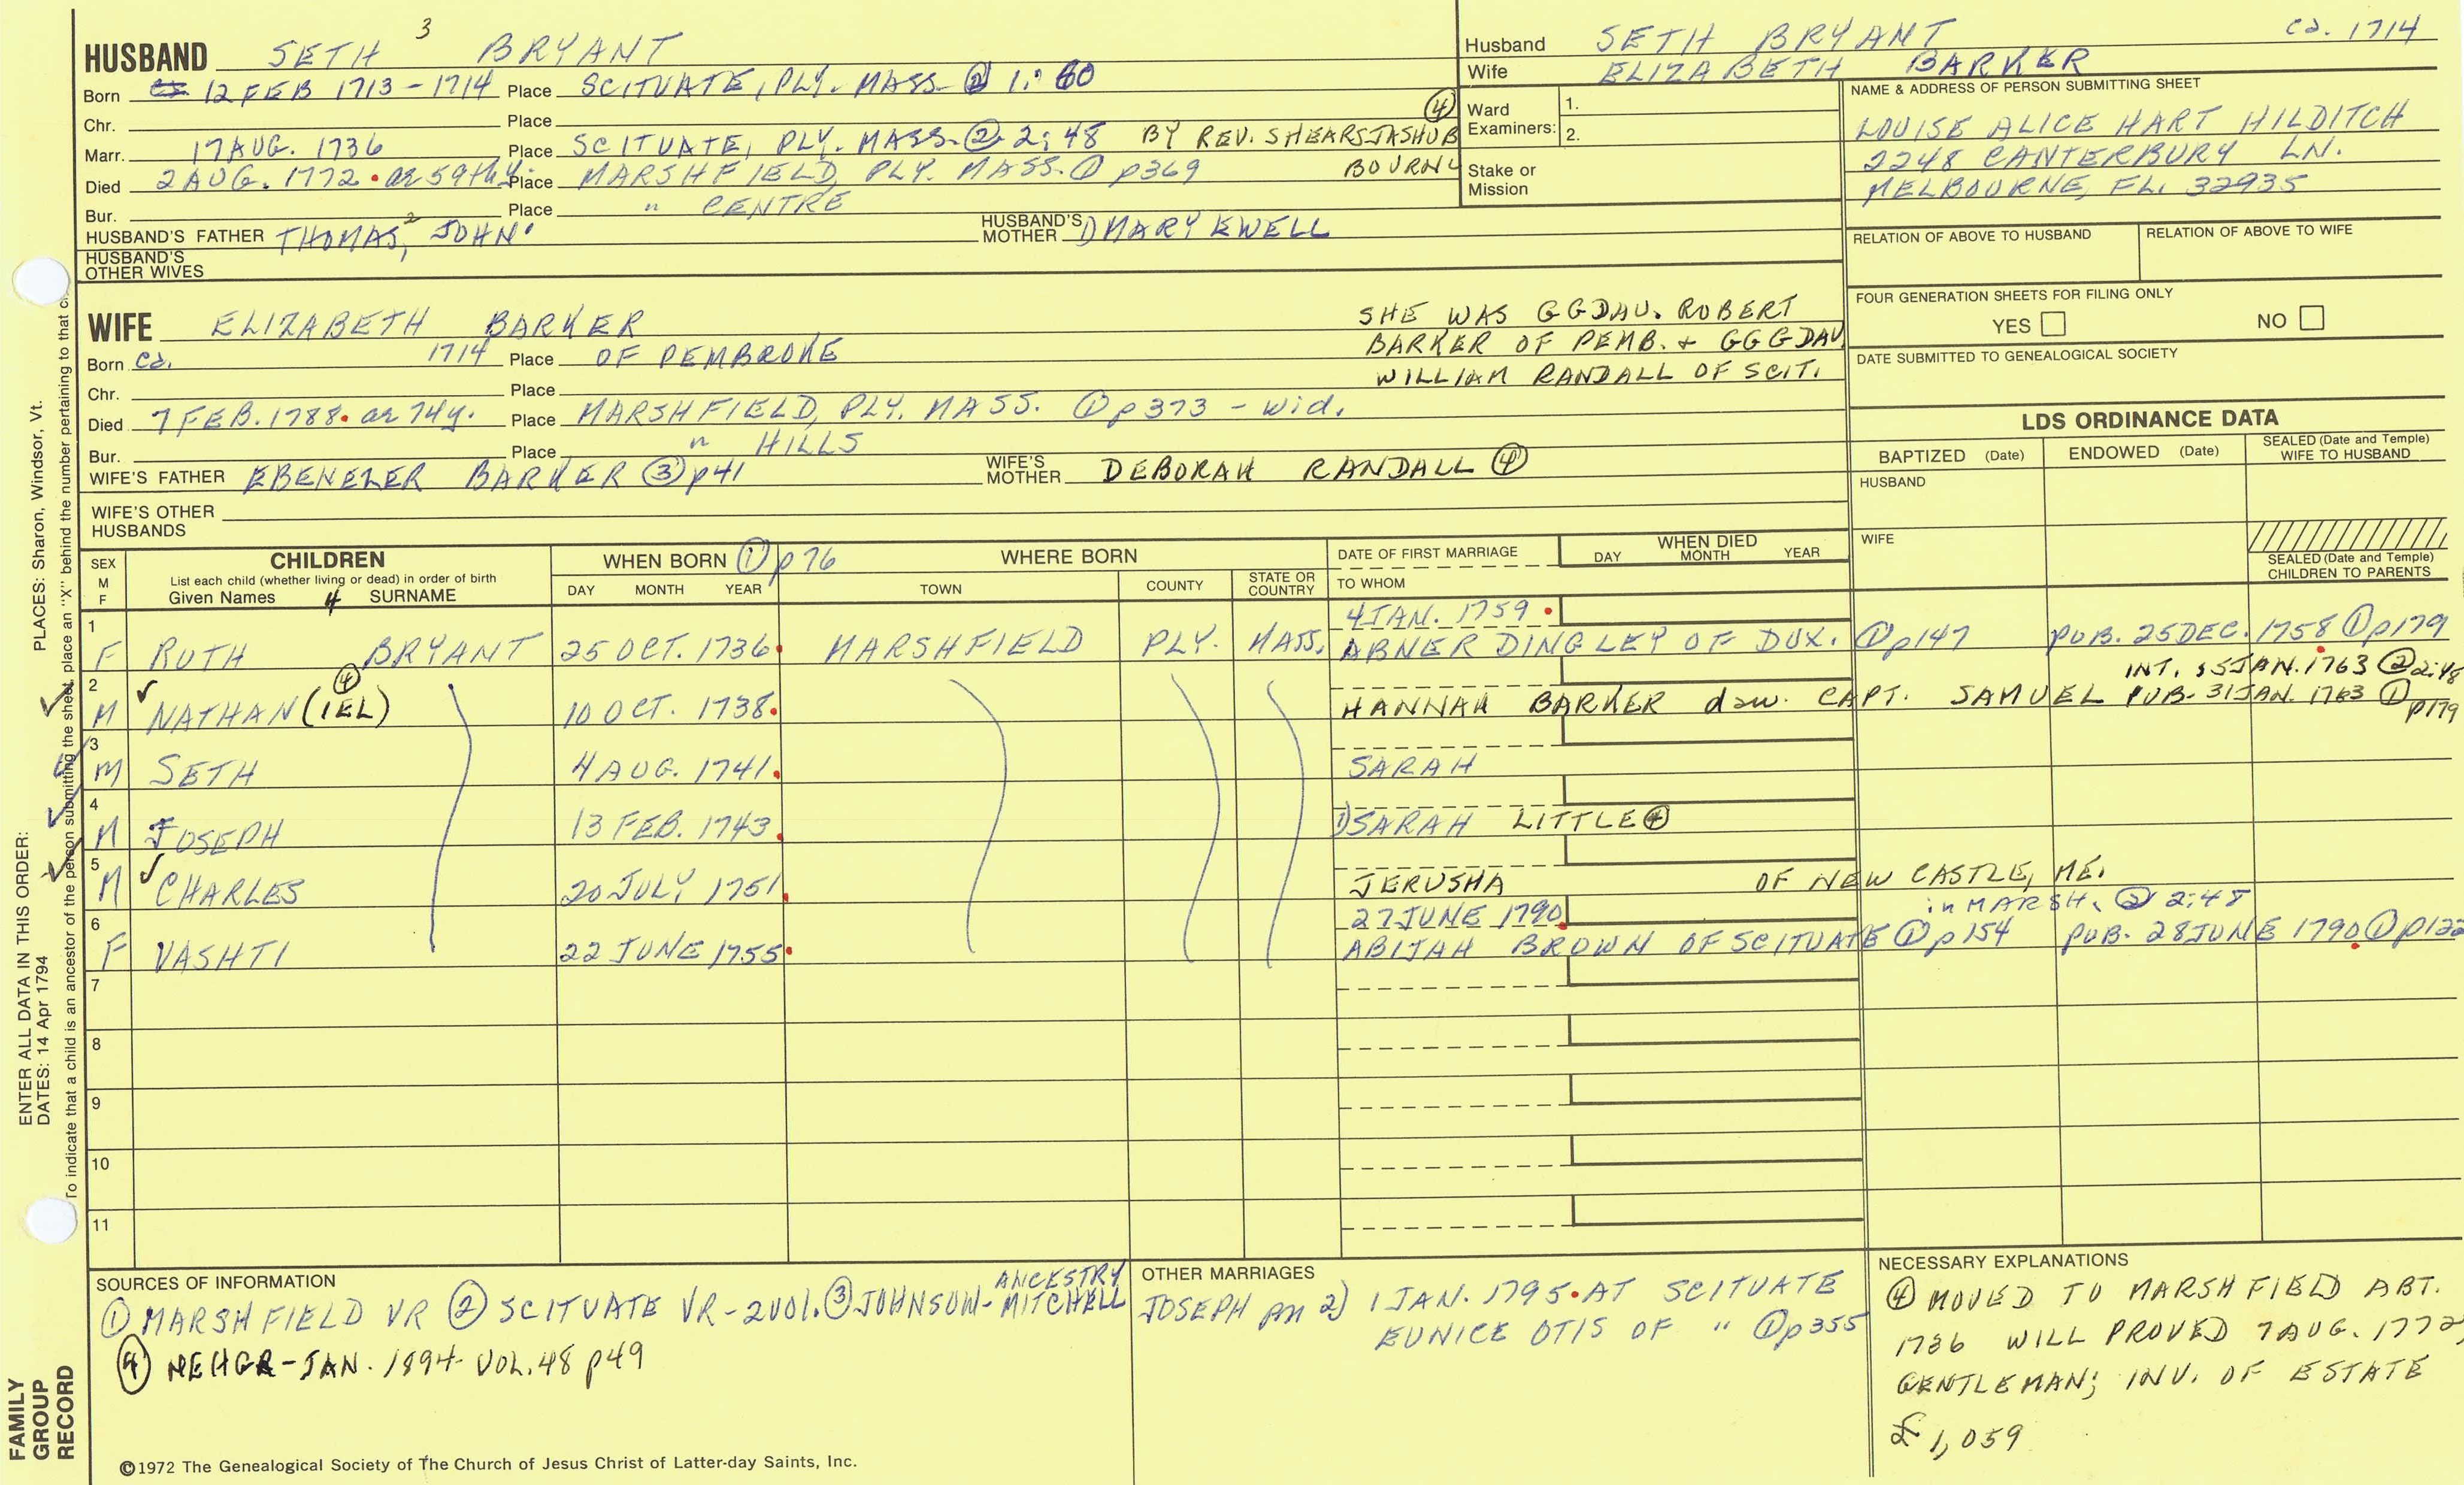 HUSBAND SETH 3 BRYANT
Born 12 FEB 1713-1714 Place SCITUATE, PLY. MASS. ② 1:60
Chr. Place
Marr. 17 AUG. 1736 Place SCITUATE, PLY. MASS. ② 2:48 ④ BY REV. SHEARSJASHUB
BOURN
Died 2 AUG. 1772. ae 59th y. Place MARSHFIELD, PLY. MASS. ① p369
Bur. Place " CENTRE
HUSBAND'S FATHER THOMAS,² JOHN¹ HUSBAND'S MOTHER MARY EWELL
HUSBAND'S OTHER WIVES
Husband SETH BRYANT ca. 1714
Wife ELIZABETH BARKER
Ward Examiners: 1.
2.
Stake or Mission
NAME & ADDRESS OF PERSON SUBMITTING SHEET
LOUISE ALICE HART HILDITCH
2248 CANTERBURY LN.
MELBOURNE, FL. 32935
RELATION OF ABOVE TO HUSBAND RELATION OF ABOVE TO WIFE
FOUR GENERATION SHEETS FOR FILING ONLY
YES NO
DATE SUBMITTED TO GENEALOGICAL SOCIETY
WIFE ELIZABETH BARKER
Born ca. 1714 Place OF PEMBROKE
SHE WAS GGDAU. ROBERT
BARKER OF PEMB. + GGGDAU
WILLIAM RANDALL OF SCIT.
Chr. Place
Died 7 FEB. 1788. ae 74y. Place MARSHFIELD, PLY. MASS. ① p373 - wid.
Bur. Place " HILLS
WIFE'S FATHER EBENEZER BARKER ③ p41 WIFE'S MOTHER DEBORAH RANDALL ④
WIFE'S OTHER HUSBANDS
LDS ORDINANCE DATA
BAPTIZED (Date) ENDOWED (Date) SEALED (Date and Temple) WIFE TO HUSBAND
HUSBAND
WIFE
SEALED (Date and Temple) CHILDREN TO PARENTS
SEX M F
CHILDREN
List each child (whether living or dead) in order of birth
Given Names 4 SURNAME
WHEN BORN ① p76
DAY MONTH YEAR
WHERE BORN
TOWN COUNTY STATE OR COUNTRY
DATE OF FIRST MARRIAGE
TO WHOM
WHEN DIED
DAY MONTH YEAR
1 4 JAN. 1759.
F RUTH BRYANT 25 OCT. 1736. MARSHFIELD PLY. MASS. ABNER DINGLEY OF DUX. ① p147 PUB. 25 DEC. 1758 ① p179
2 INT. 15 JAN. 1763 ② 2:48
M NATHAN(IEL) ④ 10 OCT. 1738. HANNAH BARKER daw. CAPT. SAMUEL PUB. 31 JAN. 1763 ① p179
3
M SETH 4 AUG. 1741. SARAH
4
M JOSEPH 13 FEB. 1743. 1) SARAH LITTLE ④
5
M CHARLES 20 JULY 1751. JERUSHA OF NEW CASTLE, ME.
6 27 JUNE 1790. in MARSH. ② 2:48
F VASHTI 22 JUNE 1755. ABIJAH BROWN OF SCITUATE ① p154 PUB. 28 JUNE 1790 ① p122
7
8
9
10
11
SOURCES OF INFORMATION
① MARSHFIELD VR ② SCITUATE VR-2 VOL. ③ JOHNSON-MITCHELL ANCESTRY
④ NEHGR-JAN. 1894 VOL. 48 p49
OTHER MARRIAGES
JOSEPH m 2) 1 JAN. 1795. AT SCITUATE
EUNICE OTIS OF " ① p355
NECESSARY EXPLANATIONS
④ MOVED TO MARSHFIELD ABT.
1736 WILL PROVED 7 AUG. 1772
GENTLEMAN; INV. OF ESTATE
£1,059
©1972 The Genealogical Society of The Church of Jesus Christ of Latter-day Saints, Inc.
ENTER ALL DATA IN THIS ORDER:
DATES: 14 Apr 1794 PLACES: Sharon, Windsor, Vt.
To indicate that a child is an ancestor of the person submitting the sheet, place an "X" behind the number pertaining to that
FAMILY
GROUP
RECORD